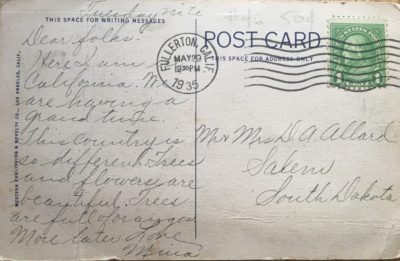 Tuesday nite
THIS SPACE FOR WRITING MESSAGES
Dear folks.
Here I am in
California. We
are having a
grand time.
This Country is
so different. Trees
and flowers are
beautiful. Trees
are full of oranges
More later Love
Mina
WESTERN PUBLISHING & NOVELTY CO., LOS ANGELES, CALIF.
POST CARD
THIS SPACE FOR ADDRESS ONLY
FULLERTON, CALIF.
MAY 29
12:30PM
1935
Mr & Mrs D. A. Allard
Salem
South Dakota